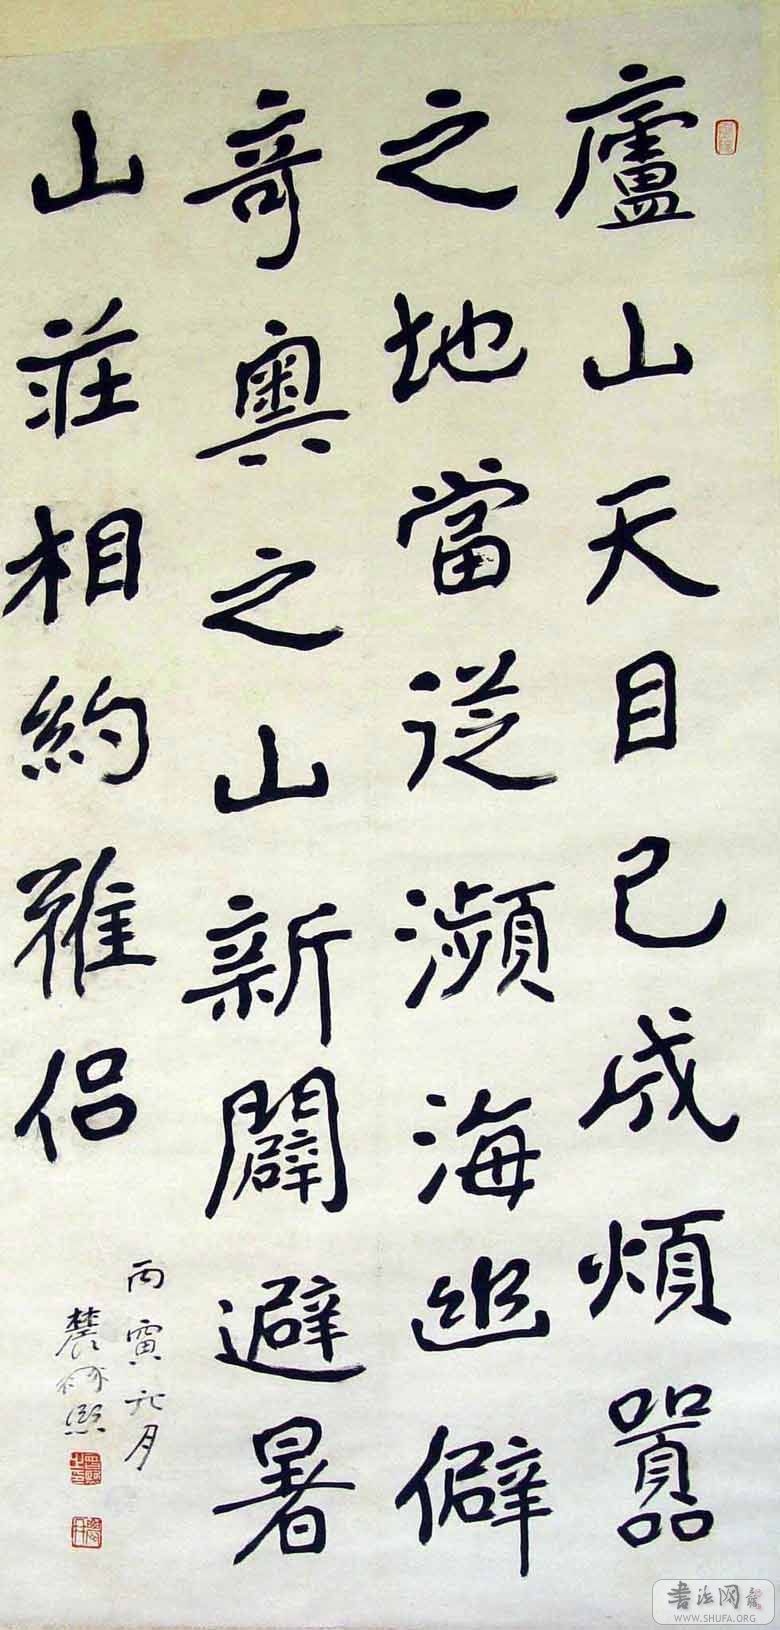 廬山天目已成煩囂
之地當從瀕海幽僻
奇奧之山新闢避暑
山莊相約雅侶
丙寅九月
農髯熙
書法网
WWW.SHUFA.ORG